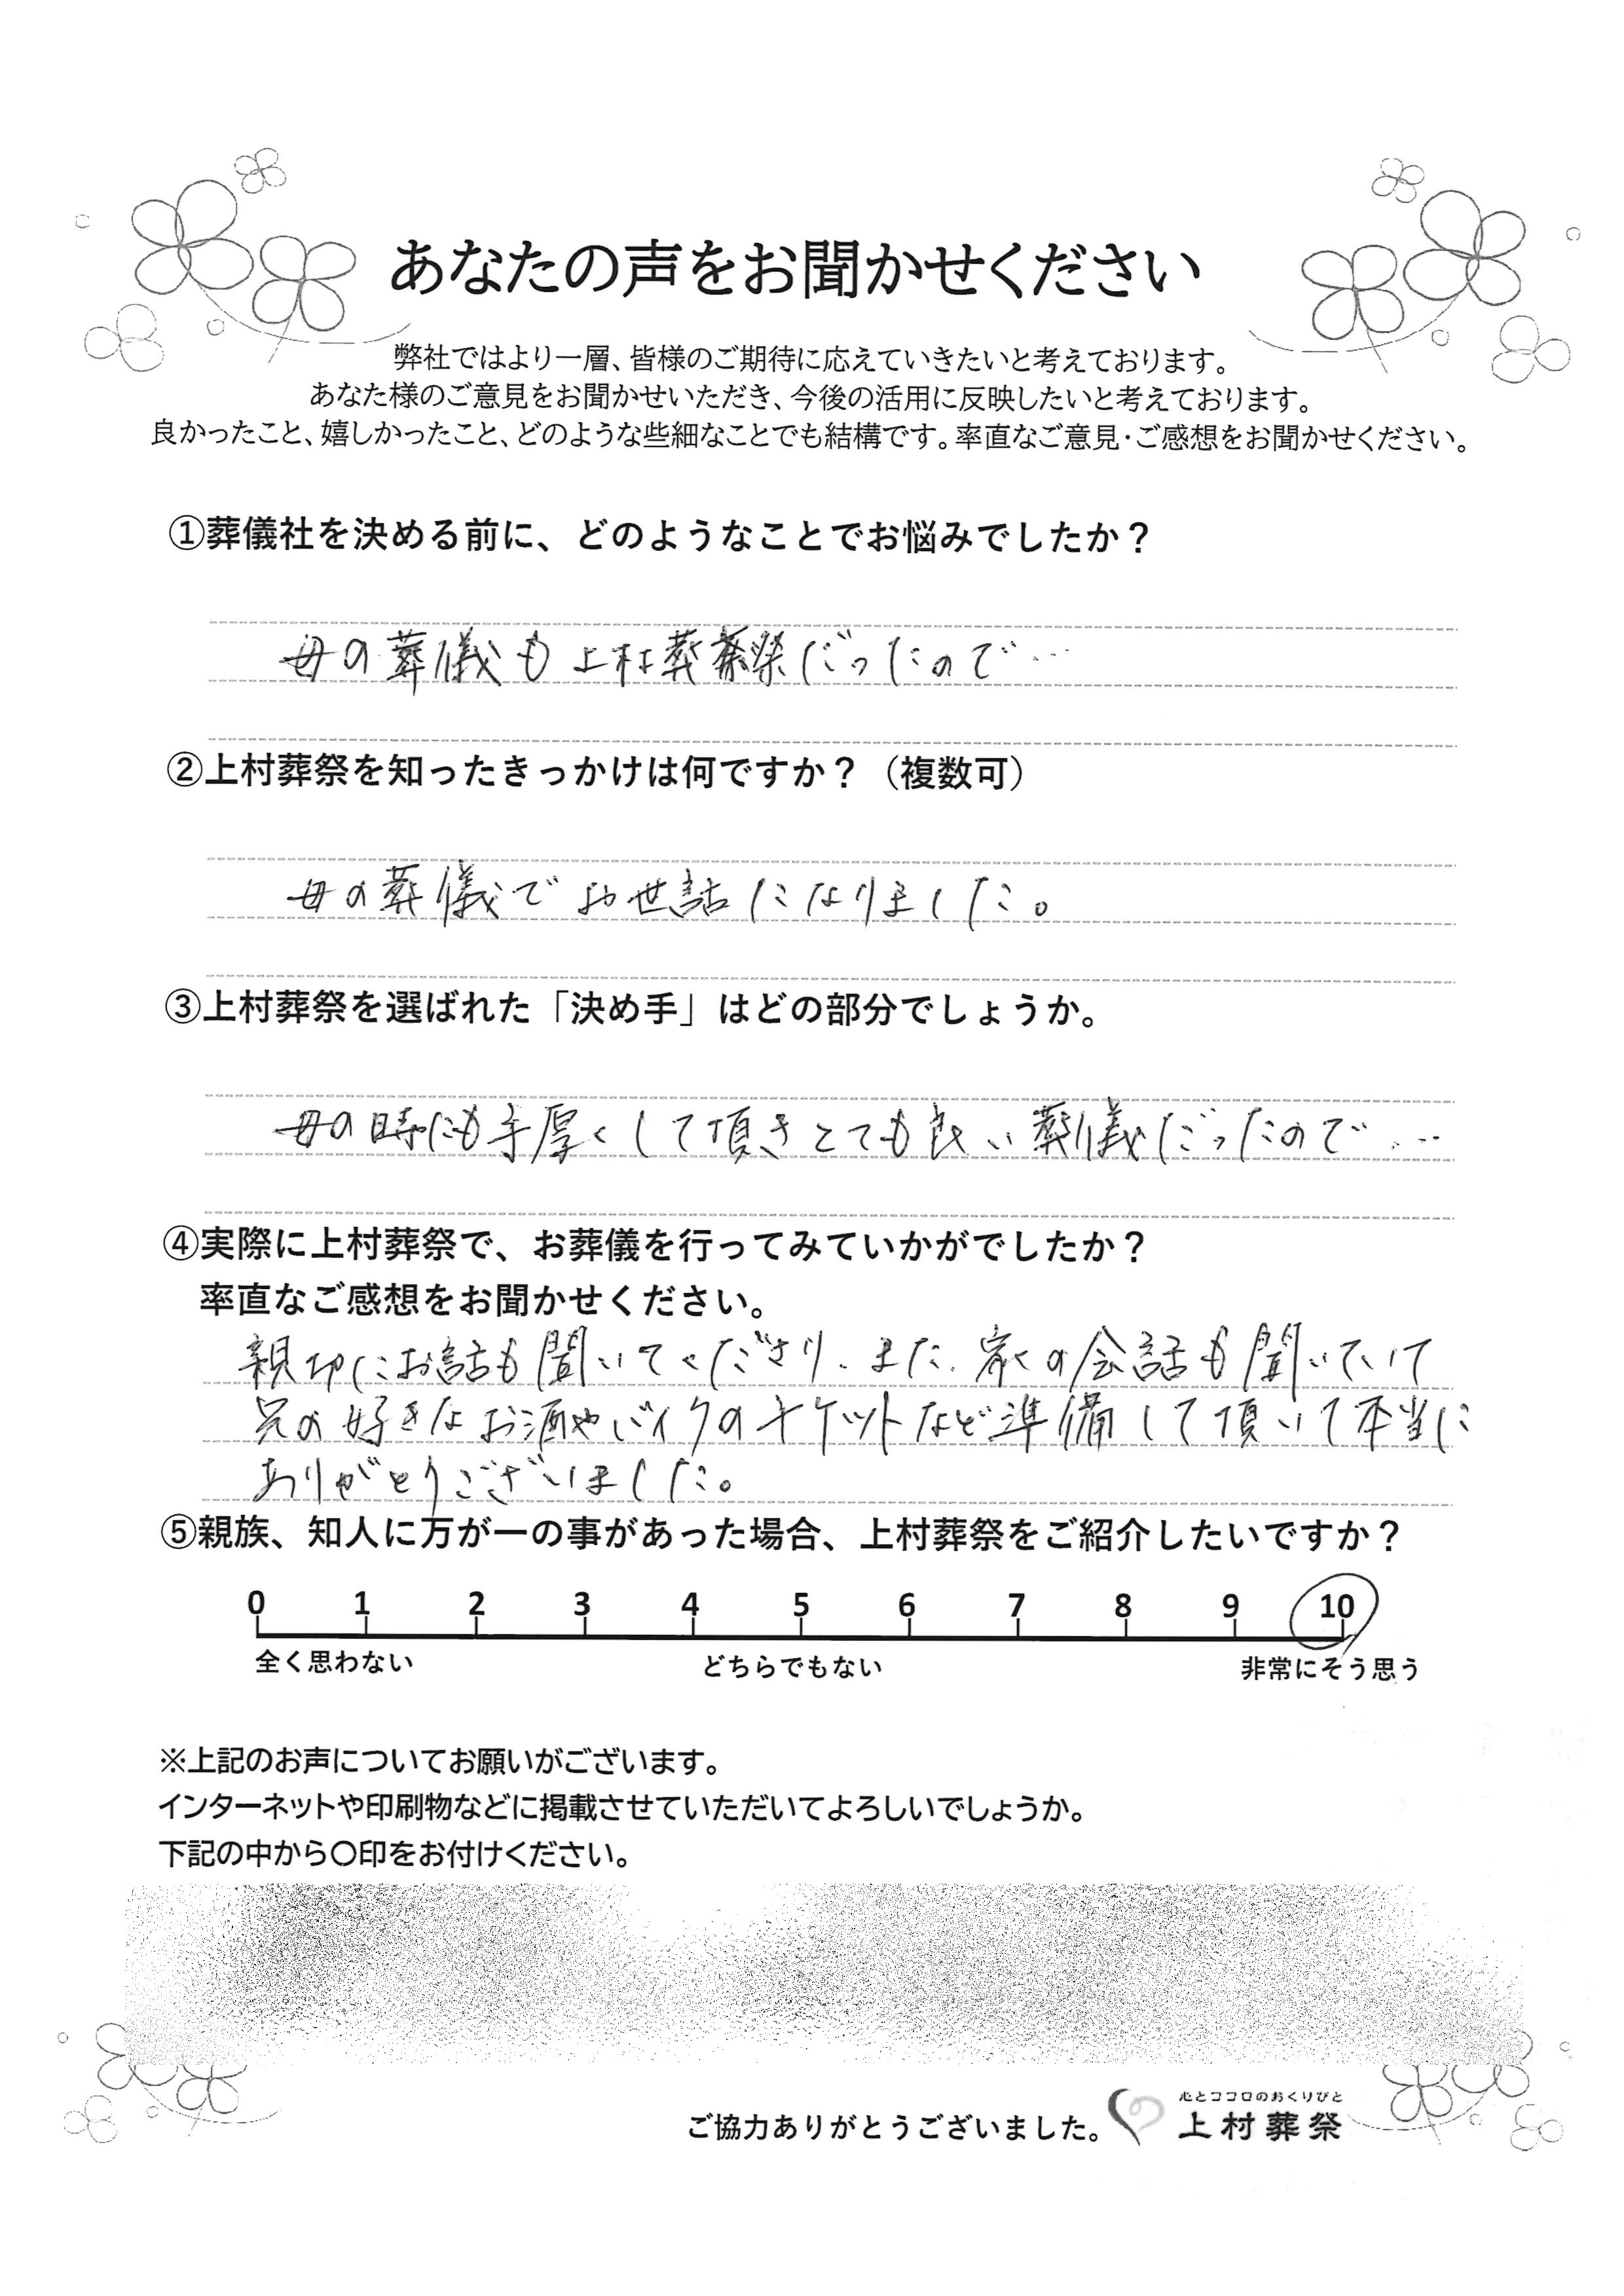 あなたの声をお聞かせください
弊社ではより一層、皆様のご期待に応えていきたいと考えております。
あなた様のご意見をお聞かせいただき、今後の活用に反映したいと考えております。
良かったこと、嬉しかったこと、どのような些細なことでも結構です。率直なご意見・ご感想をお聞かせください。
①葬儀社を決める前に、どのようなことでお悩みでしたか？
母の葬儀も上村葬祭だったので…
②上村葬祭を知ったきっかけは何ですか？（複数可）
母の葬儀でお世話になりました。
③上村葬祭を選ばれた「決め手」はどの部分でしょうか。
母の時にも手厚くして頂きとても良い葬儀だったので…
④実際に上村葬祭で、お葬儀を行ってみていかがでしたか？
率直なご感想をお聞かせください。
親切にお話も聞いてくださり、また、家の会話も聞いていて
兄の好きなお酒やバイクのチケットなど準備して頂いて本当に
ありがとうございました。
⑤親族、知人に万が一の事があった場合、上村葬祭をご紹介したいですか？
0 1 2 3 4 5 6 7 8 9 10
全く思わない どちらでもない 非常にそう思う
※上記のお声についてお願いがございます。
インターネットや印刷物などに掲載させていただいてよろしいでしょうか。
下記の中から〇印をお付けください。
心とココロのおくりびと
ご協力ありがとうございました。 上村葬祭